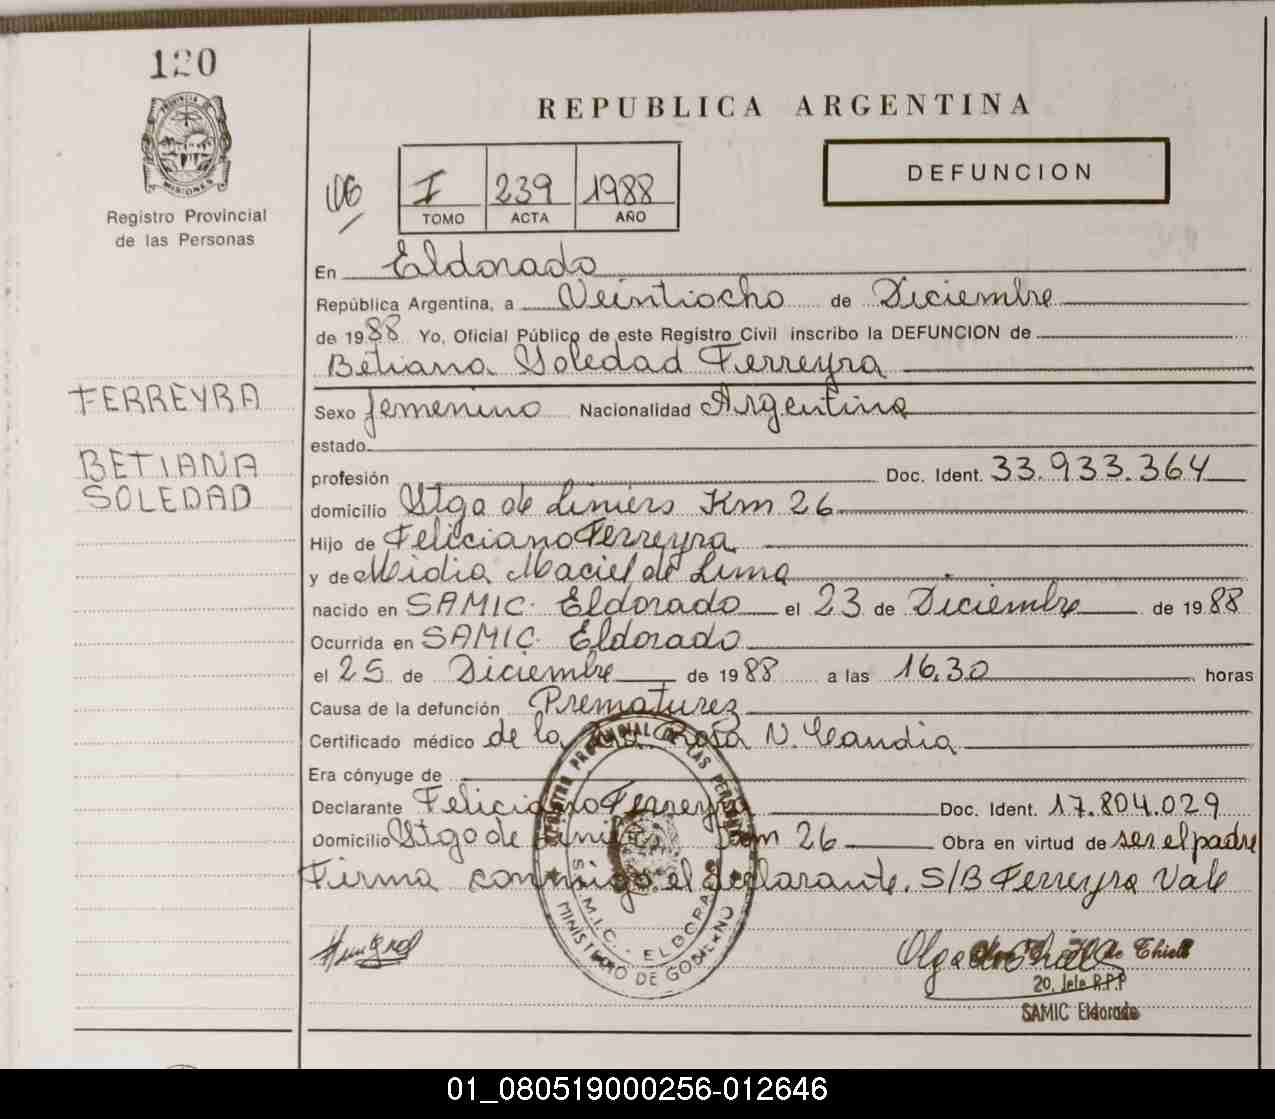 120
PROVINCIA DE
MISIONES
Registro Provincial
de las Personas
FERREYRA
BETIANA
SOLEDAD
REPUBLICA ARGENTINA
I 239 1988
TOMO ACTA AÑO
DEFUNCION
En Eldorado
República Argentina, a Veintiocho de Diciembre
de 1988 Yo, Oficial Público de este Registro Civil inscribo la DEFUNCION de
Betiana Soledad Ferreyra
Sexo femenino Nacionalidad Argentina
estado
profesión Doc. Ident. 33.933.364
domicilio Stgo de Liniers Km 26
Hijo de Feliciano Ferreyra
y de Midia Maciel de Lima
nacido en SAMIC. Eldorado el 23 de Diciembre de 1988
Ocurrida en SAMIC. Eldorado
el 25 de Diciembre de 1988 a las 16,30 horas
Causa de la defunción Prematurez
Certificado médico de la Dra. Rosa N. Candia
Era cónyuge de
Declarante Feliciano Ferreyra Doc. Ident. 17.804.029
Domicilio Stgo de Liniers Km 26 Obra en virtud de ser el padre
Firma conmigo el declarante. S/B Ferreyra Vale
REGISTRO PROVINCIAL DE LAS PERSONAS
S.A.M.I.C. - ELDORADO
MINISTERIO DE GOBIERNO
Olga de Thiele
20. Jefe R.P.P
SAMIC Eldorado
01_080519000256-012646